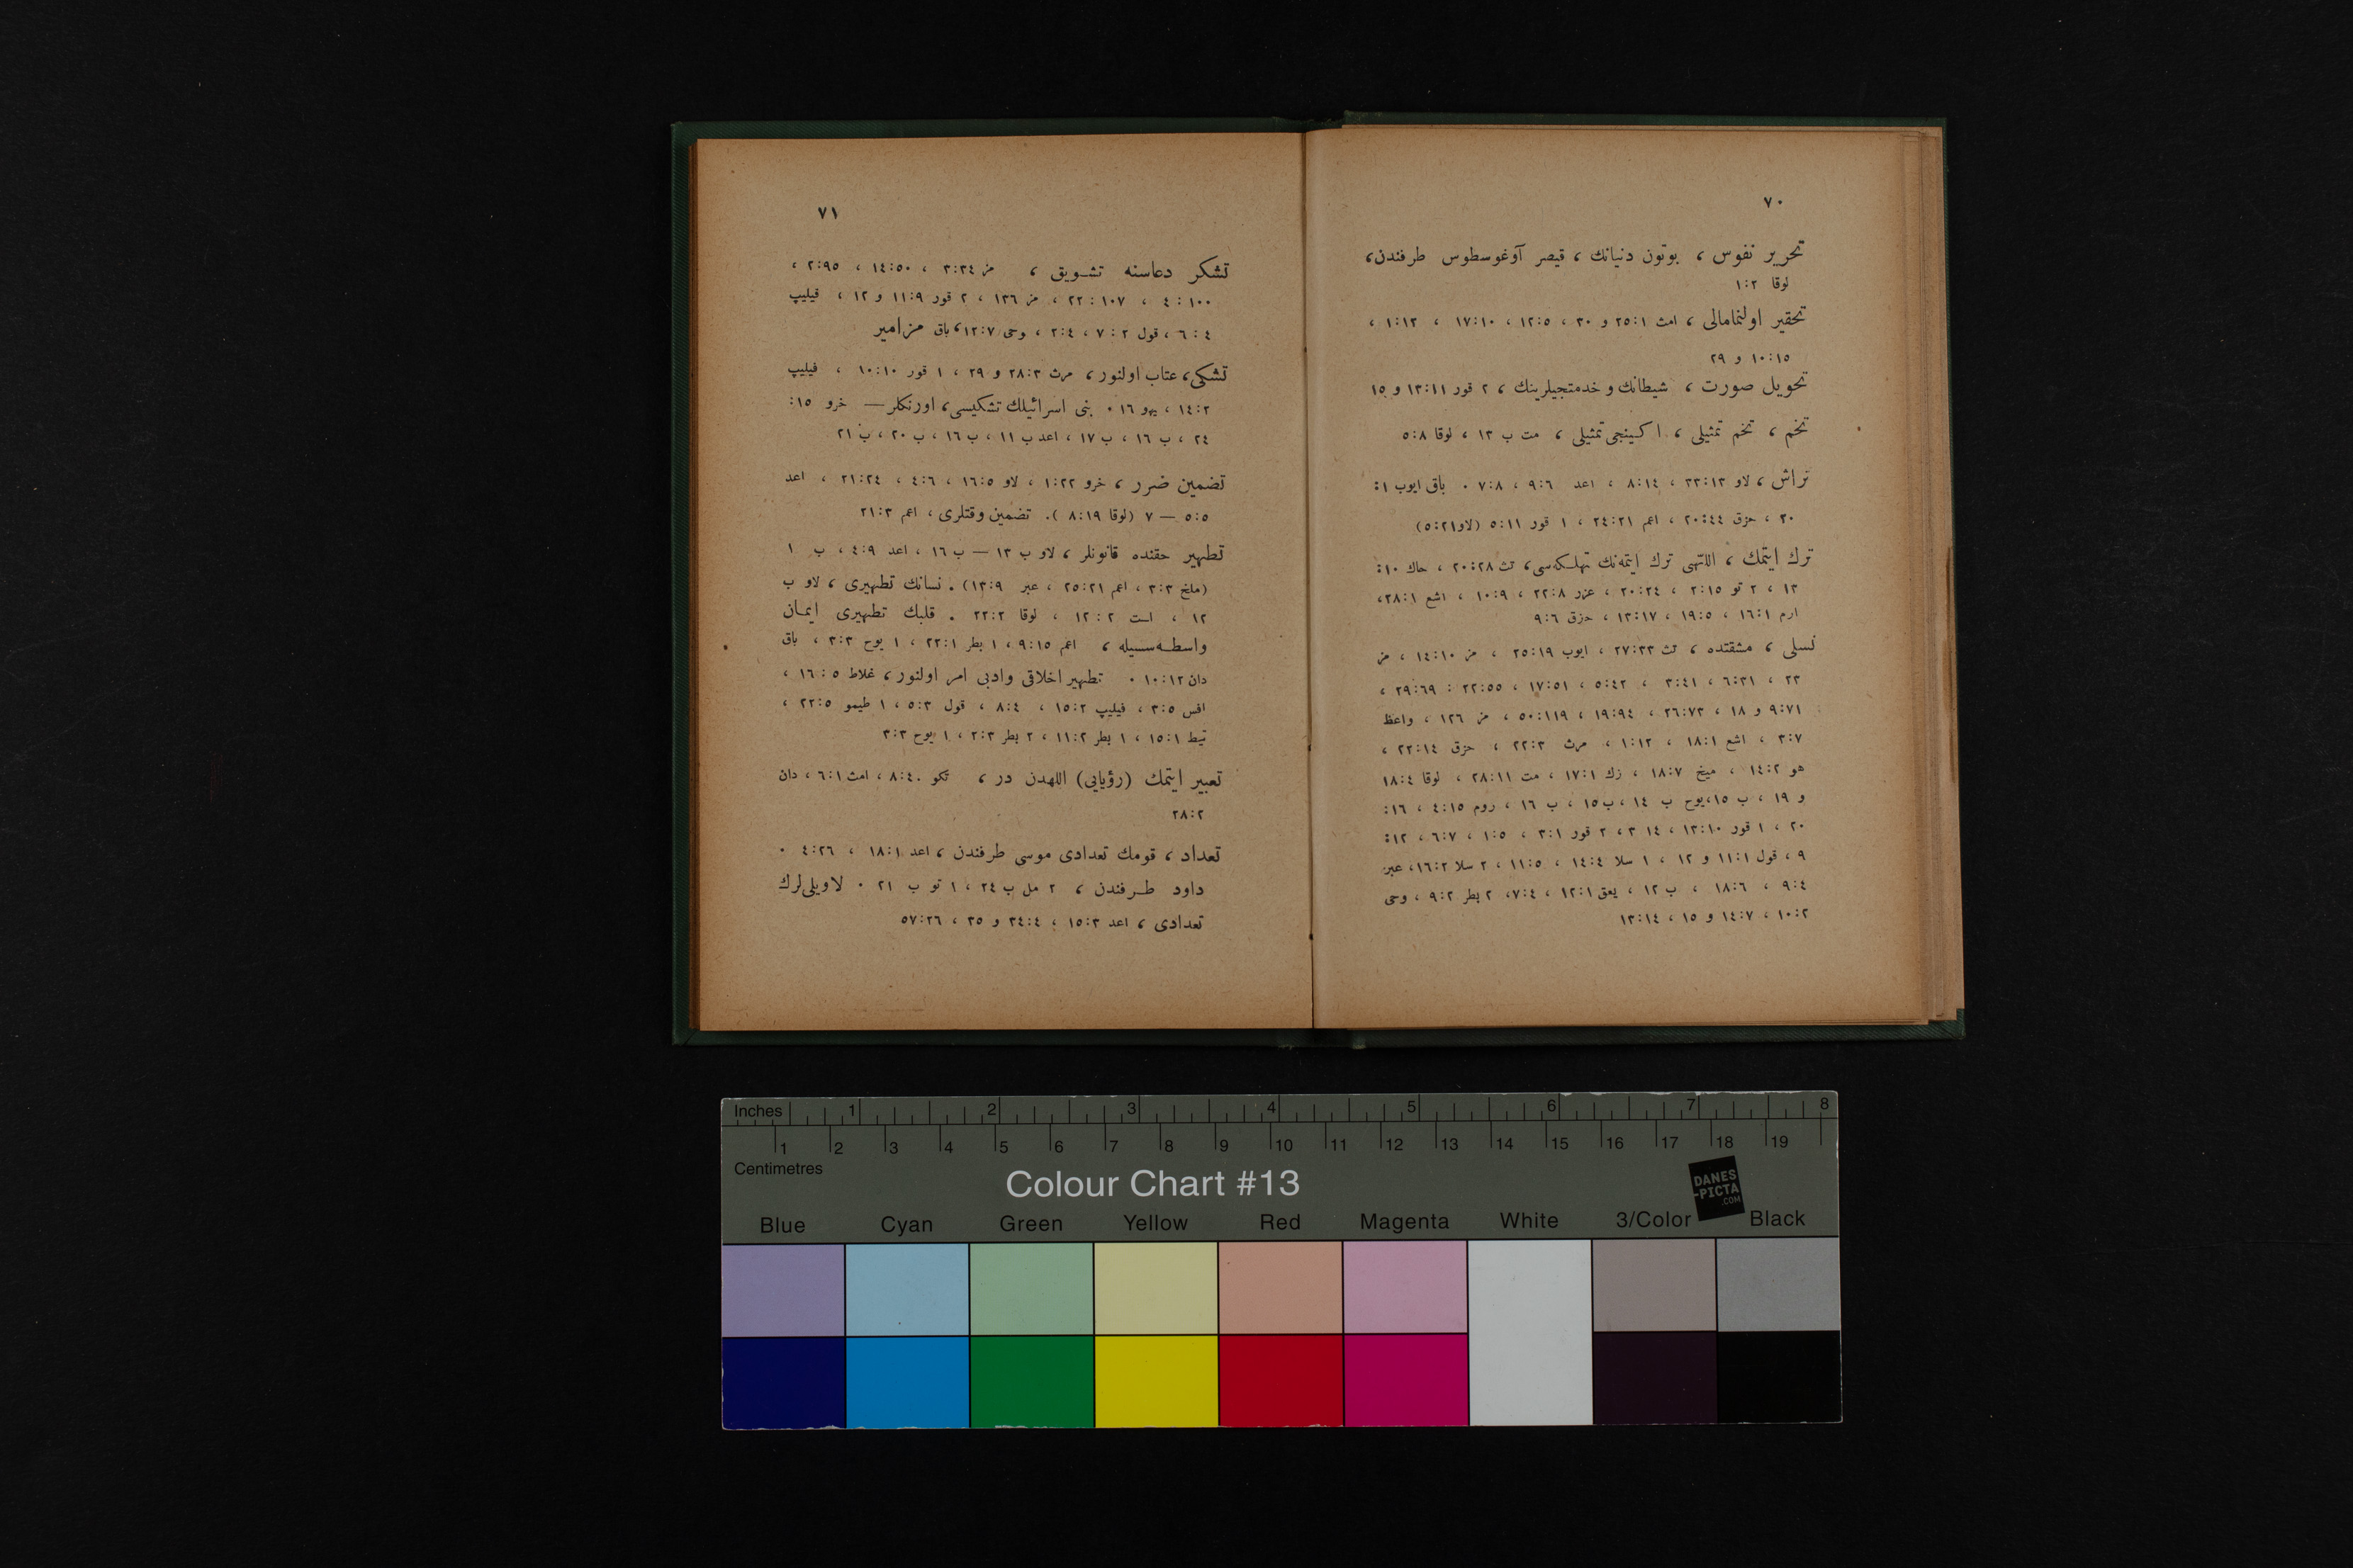 ٧٠
تحریر نفوس ، بوتون دنیانك ، قیصر آوغوسطوس طرفندن،
لوقا ١:٢
تحقیر اولنمامالی ، امث ٢٥:١ و ٣٠ ، ١٢:٥ ، ١٧:١٠ ، ١:١٣ ،
١٠:١٥ و ٢٩
تحویل صورت ، شیطانك و خدمتجیلرینك ، ٢ قور ١٣:١١ و ١٥
تخم ، تخم تمثیلی ، اكینجی تمثیلی ، مت ب ١٣ ، لوقا ٥:٨
تراش ، لاو ٣٣:١٣ ، ٨:١٤ ، اعد ٩:٦ ، ٧:٨ . باق ایوب ١:
٢٠ ، حزق ٢٠:٤٤ ، اعم ٢٤:٢١ ، ١ قور ٥:١١ (لاو٥:٢١)
ترك ایتمك ، اللهی ترك ایتمه‌نك تهلكه‌سی، تث ٢٠:٢٨ ، حاك ١٠:
١٣ ، ٢ تو ٢:١٥ ، ٢٠:٢٤ ، عزر ٢٢:٨ ، ١٠:٩ ، اشع ٢٨:١،
ارم ١٦:١ ، ١٩:٥ ، ١٣:١٧ ، حزق ٩:٦
تسلی ، مشقتده ، تث ٢٧:٣٣ ، ایوب ٢٥:١٩ ، مز ١٤:١٠ ، مز
٢٣ ، ٦:٣١ ، ٣:٤١ ، ٥:٤٢ ، ١٧:٥١ ، ٢٢:٥٥ : ٢٩:٦٩ ،
٩:٧١ و ١٨ ، ٢٦:٧٣ ، ١٩:٩٤ ، ٥٠:١١٩ ، مز ١٢٦ ، واعظ
٣:٧ ، اشع ١٨:١ ، ١:١٢ ، مرث ٢٢:٣ ، حزق ٢٢:١٤ ،
هو ١٤:٢ ، میخ ١٨:٧ ، زك ١٧:١ ، مت ٢٨:١١ ، لوقا ١٨:٤
و ١٩ ، ب ١٥،یوح ب ١٤ ، ب١٥ ، ب ١٦ ، روم ٤:١٥ ، ١٦:
٢٠ ، ١ قور ١٣:١٠ ، ١٤ ٣ ، ٢ قور ٣:١ ، ١:٥ ، ٦:٧ ، ١٢:
٩ ، قول ١١:١ و ١٢ ، ١ سلا ١٤:٤ ، ١١:٥ ، ٢ سلا ١٦:٢، عبر
٩:٤ ، ١٨:٦ ، ب ١٢ ، یعق ١٢:١ ، ٧:٤، ٢ بطر ٩:٢ ، وحی
١٠:٢ ، ١٤:٧ و ١٥ ، ١٣:١٤
٧١
تشكر دعاسنه تشویق ، مز ٣:٣٤ ، ١٤:٥٠ ، ٢:٩٥ ،
١٠٠ : ٤ ، ١٠٧ : ٢٢ ، مز ١٣٦ ، ٢ قور ١١:٩ و ١٢ ، فیلیپ
٤ : ٦ ، قول ٢ : ٧ ، ٢:٤ ، وحی ١٢:٧،باق مزامیر
تشكی، عتاب اولنور ، مرث ٢٨:٣ و ٢٩ ، ١ قور ١٠:١٠ ، فیلیپ
١٤:٢ ، یهو ١٦ . بنی اسرائیلك تشكیسی، اورنكلر — خرو ١٥:
٢٤ ، ب ١٦ ، ب ١٧ ، اعد ب ١١ ، ب ١٦ ، ب ٢٠ ، ب ٢١
تضمین ضرر ، خرو ١:٢٢ ، لاو ١٦:٥ ، ٤:٦ ، ٢١:٢٤ ، اعد
٥:٥ — ٧ (لوقا ٨:١٩ ). تضمین وقتلری ، اعم ٢١:٣
تطهیر حقنده قانونلر ، لاو ب ١٣ — ب ١٦ ، اعد ٤:٩ ، ب ١
(ملخ ٣:٣ ، اعم ٢٥:٢١ ، عبر ١٣:٩) . نسانك تطهیری ، لاو ب
١٢ ، است ٢ : ١٢ ، لوقا ٢٢:٢ . قلبك تطهیری ایمان
واسطه‌سیله ، اعم ٩:١٥ ، ١ بطر ٢٢:١ ، ١ یوح ٣:٣ ، باق
دان ١٠:١٢ . تطهیر اخلاقی وادبی امر اولنور ، غلاط ٥ : ١٦ ،
افس ٣:٥ ، فیلیپ ١٥:٢ ، ٨:٤ ، قول ٥:٣ ، ١ طیمو ٢٢:٥ ،
تیط ١٥:١ ، ١ بطر ١١:٢ ، ٢ بطر ٢:٣ ، ١ یوح ٣:٣
تعبیر ایتمك (رؤیایی) اللهدن در ، تكو ٨:٤٠ ، امث ٦:١ ، دان
٢٨:٢
تعداد ، قومك تعدادی موسی طرفندن ، اعد ١٨:١ ، ٤:٢٦ .
داود طرفندن ، ٢ مل ب ٢٤ ، ١ تو ب ٢١ . لاویلی‌لرك
تعدادی ، اعد ١٥:٣ ، ٣٤:٤ و ٣٥ ، ٥٧:٢٦
Inches 1 2 3 4 5 6 7 8
1 2 3 4 5 6 7 8 9 10 11 12 13 14 15 16 17 18 19
Centimetres
Colour Chart #13
DANES
-PICTA
.COM
Blue Cyan Green Yellow Red Magenta White 3/Color Black